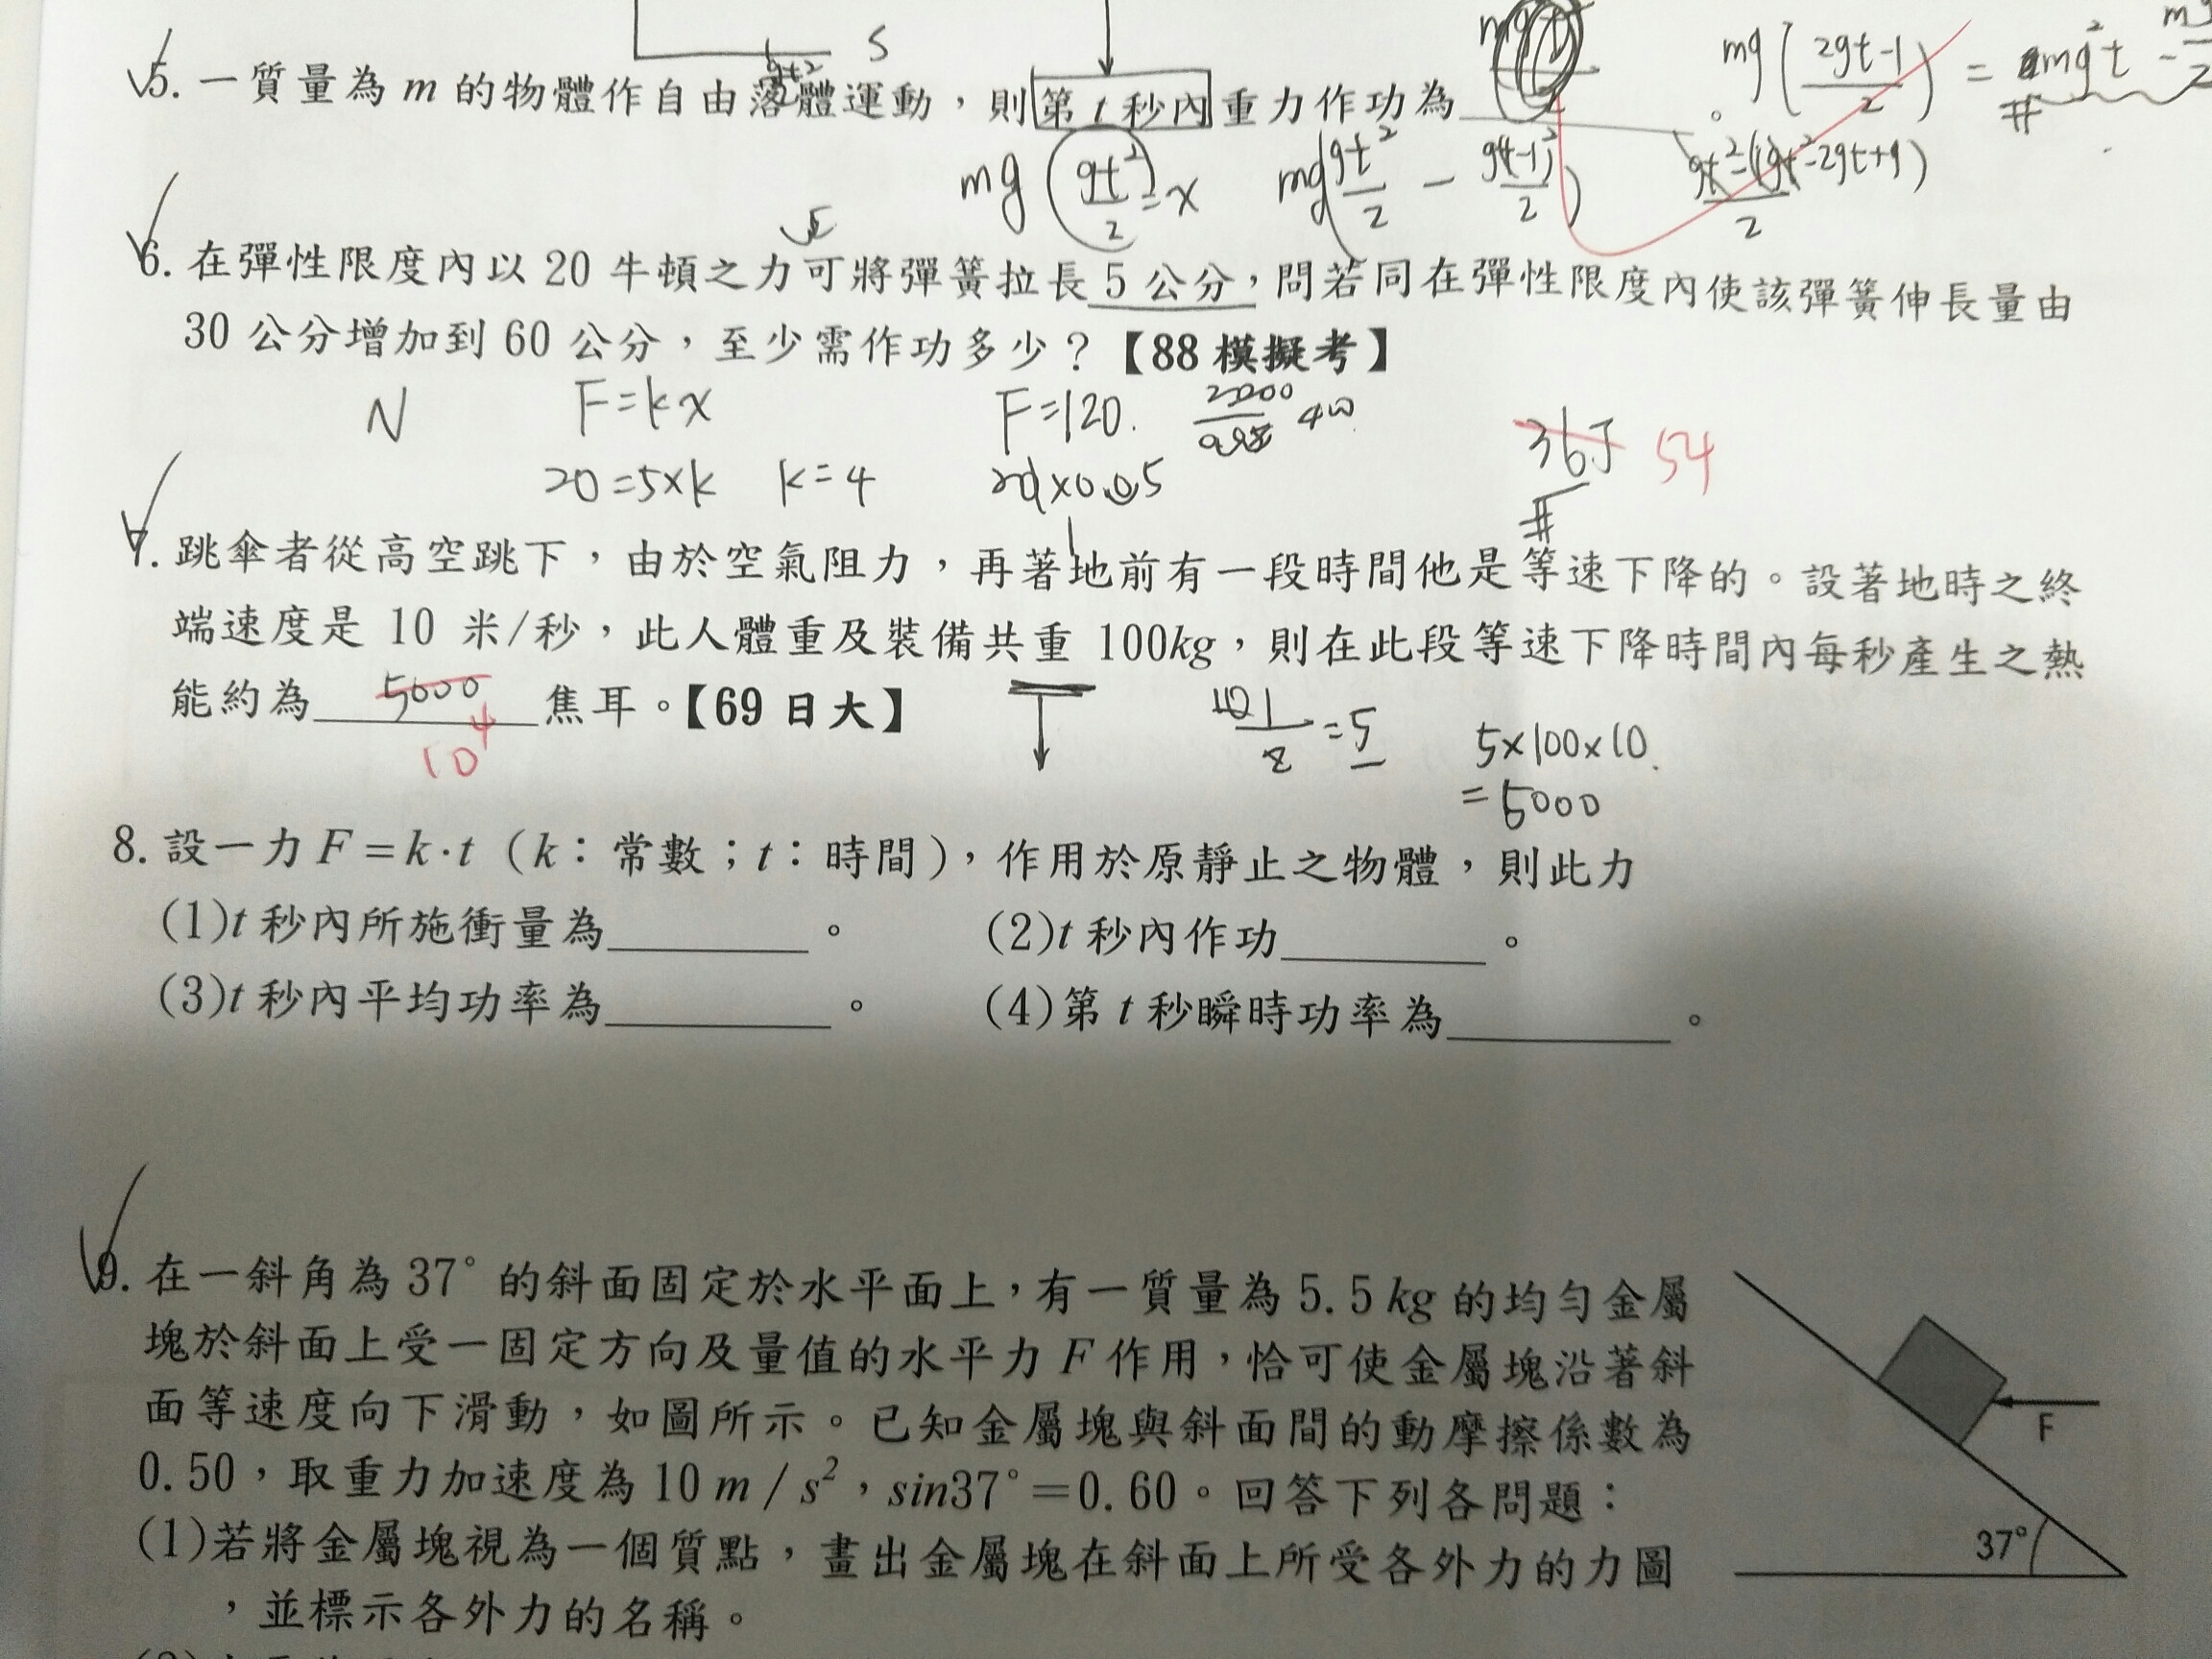 S
mg(2gt-1/2) = mg²t -
5. 一質量為 m 的物體作自由落體運動，則第 t 秒內重力作功為 。
mg(gt²/2)=x mg(gt²/2 - g(t-1)²/2)
6. 在彈性限度內以 20 牛頓之力可將彈簧拉長 5 公分，問若同在彈性限度內使該彈簧伸長量由
30 公分增加到 60 公分，至少需作功多少？【88 模擬考】
N F=kx F=120. 400
20=5×k k=4 36J 54
7. 跳傘者從高空跳下，由於空氣阻力，再著地前有一段時間他是等速下降的。設著地時之終
端速度是 10 米/秒，此人體重及裝備共重 100kg，則在此段等速下降時間內每秒產生之熱
能約為 5000 焦耳。【69 日大】
10⁴ =5 5×100×10
=5000
8. 設一力 F=k·t（k：常數；t：時間），作用於原靜止之物體，則此力
(1)t 秒內所施衝量為 。 (2)t 秒內作功 。
(3)t 秒內平均功率為 。 (4)第 t 秒瞬時功率為 。
9. 在一斜角為 37° 的斜面固定於水平面上，有一質量為 5.5 kg 的均勻金屬
塊於斜面上受一固定方向及量值的水平力 F 作用，恰可使金屬塊沿著斜
面等速度向下滑動，如圖所示。已知金屬塊與斜面間的動摩擦係數為
0.50，取重力加速度為 10 m / s²，sin37°＝0.60。回答下列各問題：
(1)若將金屬塊視為一個質點，畫出金屬塊在斜面上所受各外力的力圖
，並標示各外力的名稱。
F
37°